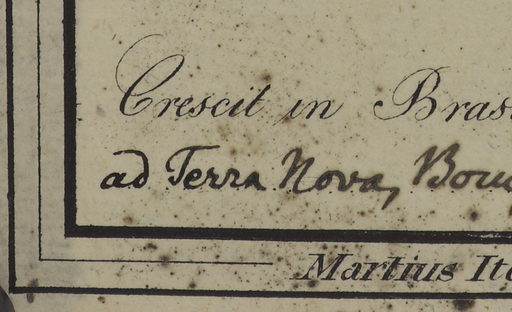 Crescit in Bras
ad Terra Nova, Bou
Martius Ite